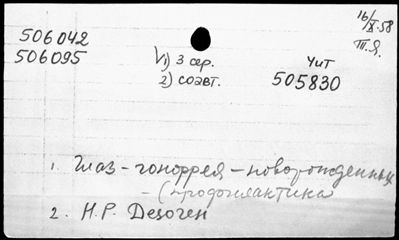 16/X-58
П.Я.
506042
506095
√1) 3 сер.
2) соавт.
Чит
505830
1. Глаз - гоноррея - новорожденных
- (профилактика
2. Н.Р. Дезоген